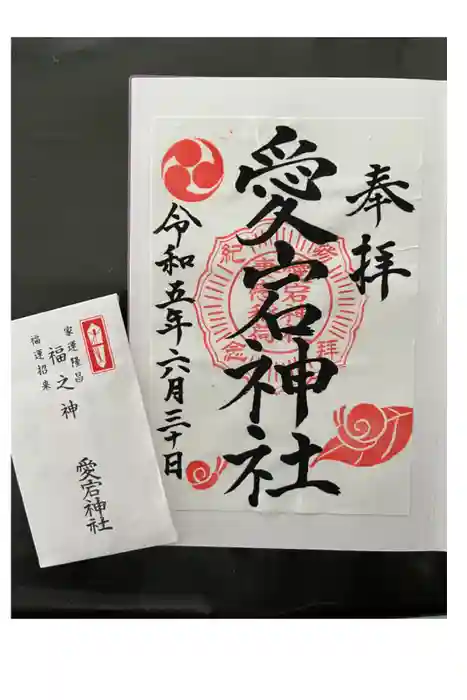 奉拝
愛宕神社
令和五年六月三十日
参拝
紀念
家運隆昌
福之神
福運招来
愛宕神社